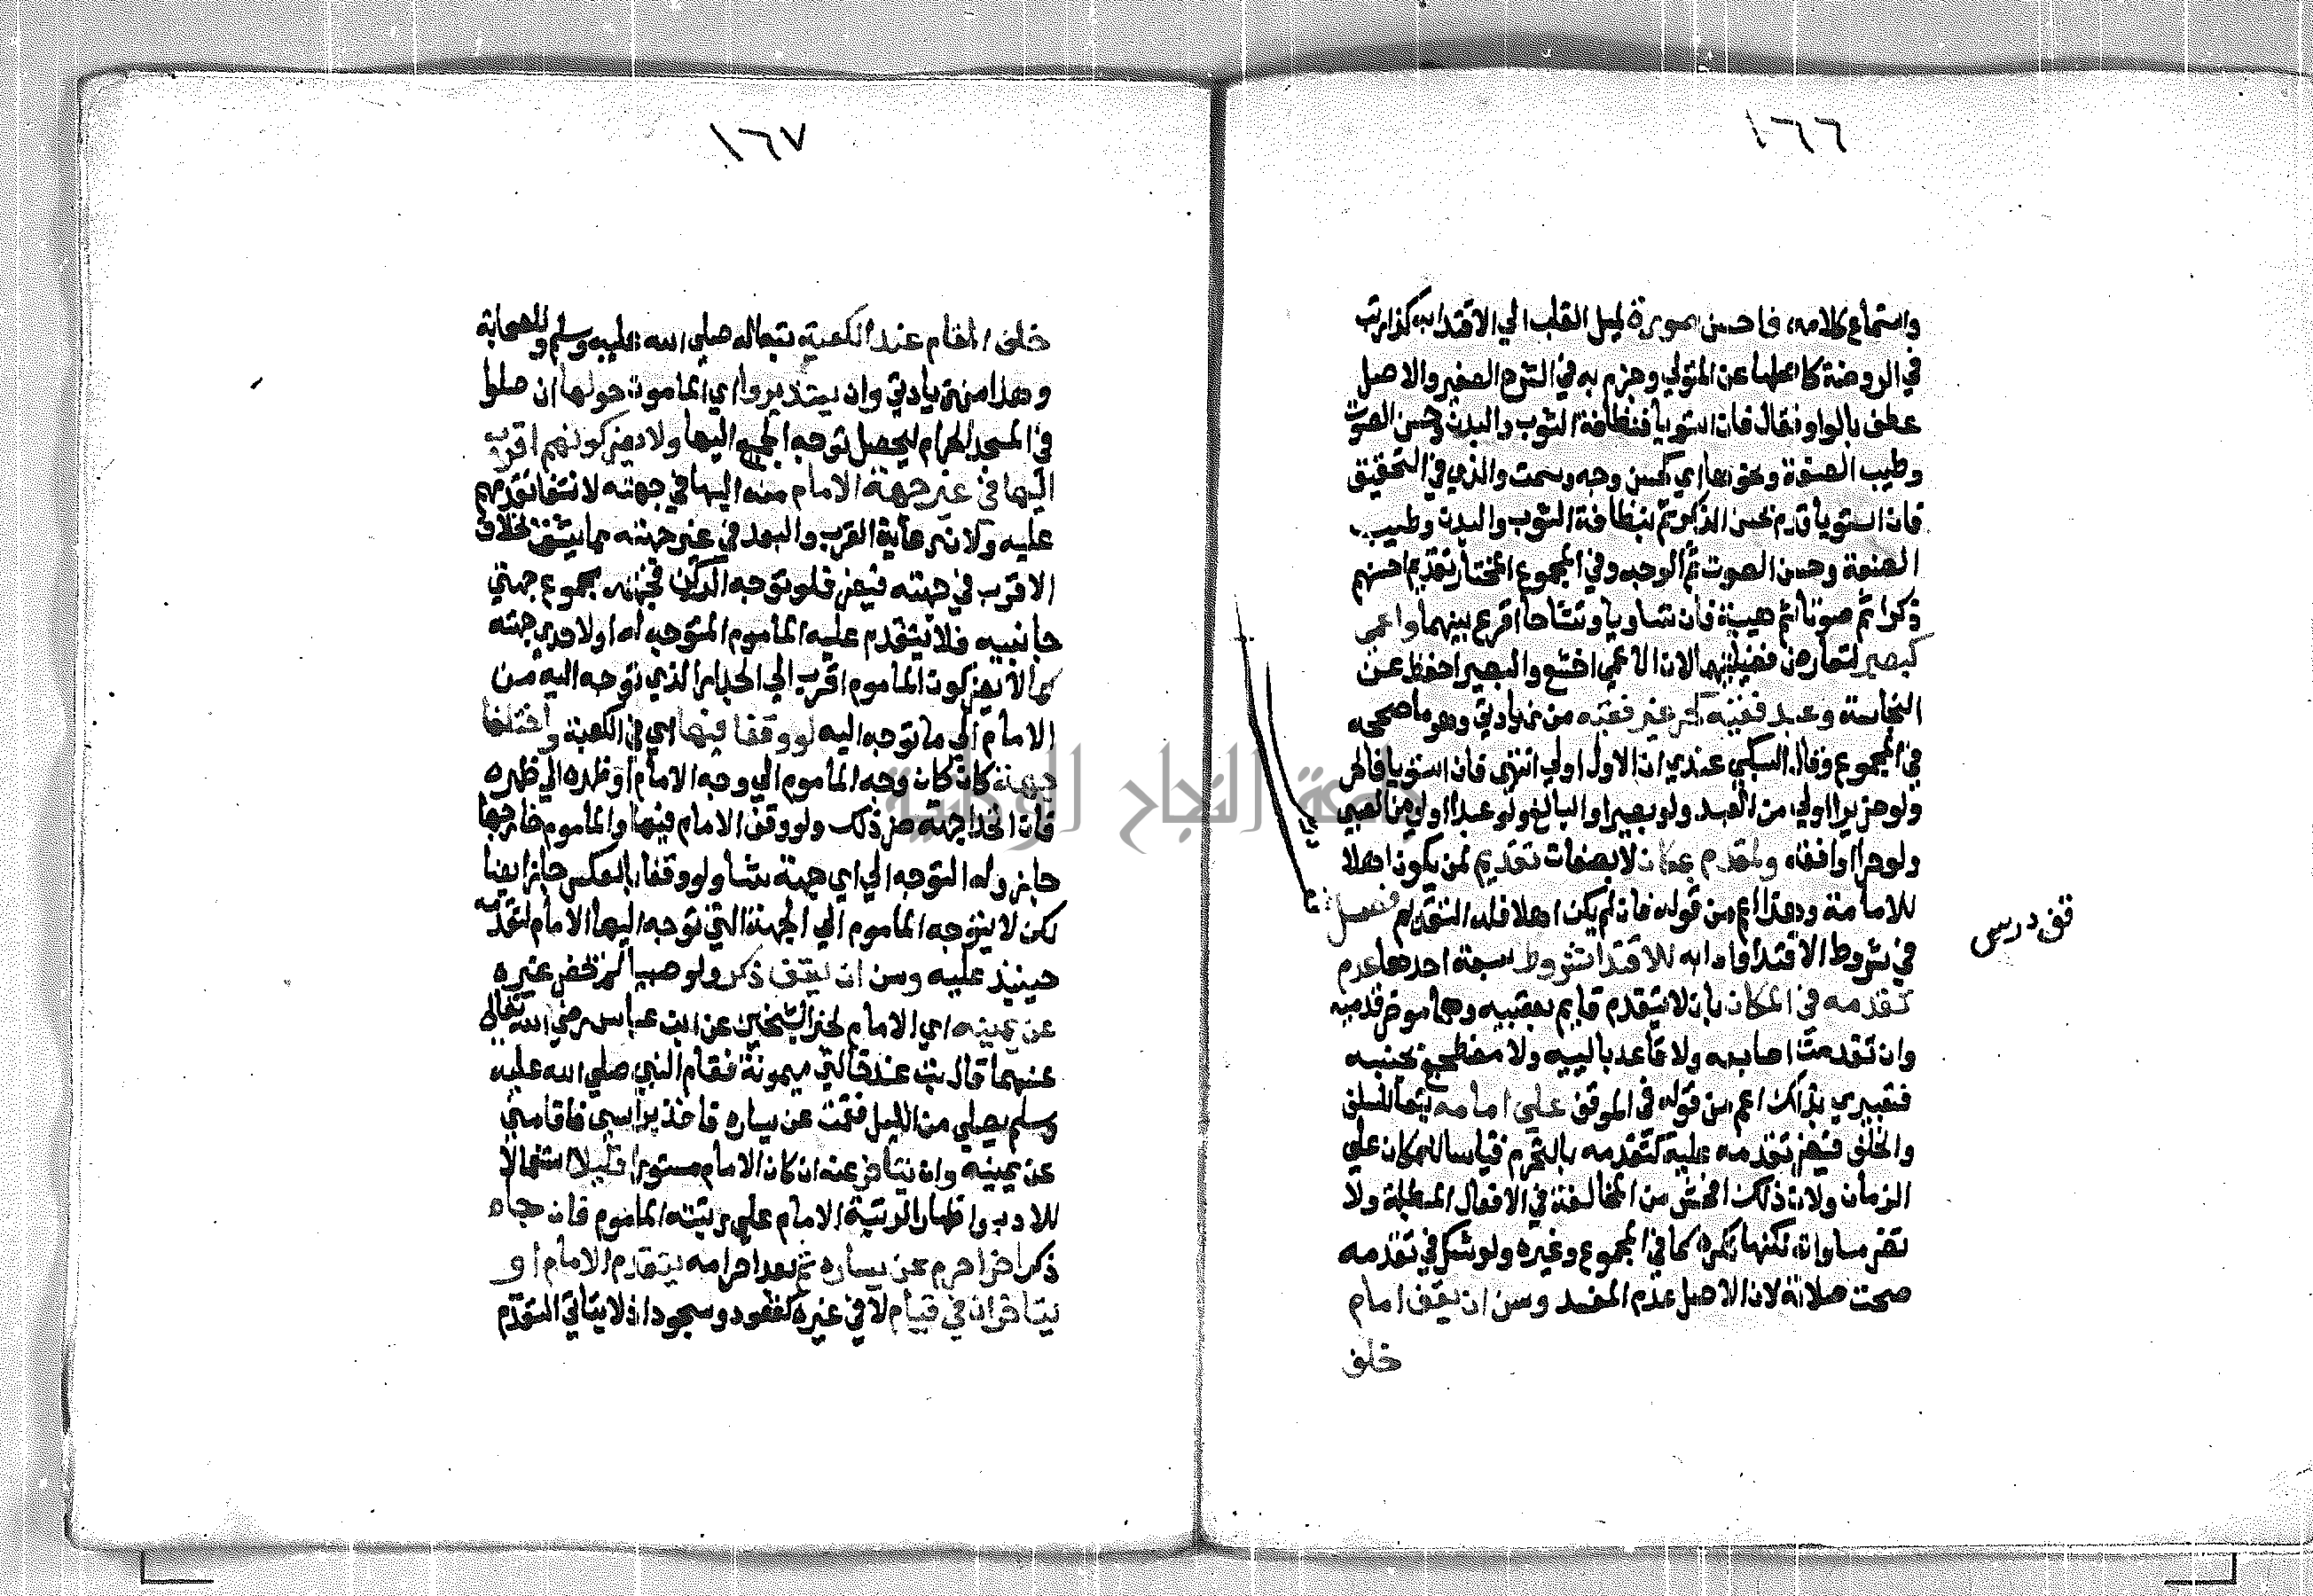 ١٦٦
واستماع كلامه، فاحسن صورة لميل القلب الي الاقتدا به كذا رتب
في الروضة كاصلها عن المتولي وجزم به في الشرح الصغير والاصل
عطف بالواو فقال فان استويا فنظافة الثوب والبدن وحسن الصوت
وطيب الصنعة ونحوها اي كحسن وجه وسمت والذي في التحقيق
فان استويا قدم بحسن الذكر ثم بنظافة الثوب والبدن وطيب
الصنعة وحسن الصوت ثم الوجه وفي المجموع المختار تقديم احسنهم
ذكرا ثم صوتا ثم هيبة فان تساويا وتشاحا اقرع بينهما واعمى
كبصير لتعارض فضيلتهما لان الاعمى اخشع والبصير احفظ عن
النجاسة وعبد فقيه كحر غير فقيه من زيادتي وهو ما صححه
في المجموع وقال السبكي عندي ان الاول اولي انتهى فان استويا فالحر
ولو ضريرا اولي من العبد ولو بصيرا والبالغ ولو عبدا اولي من الصبي
ولو حرا وافقه ولمقدم بمكان لا بصفات تقديم لمن يكون اهلا
للامامة وهذا اعم من قوله فان لم يكن اهلا فله التقديم فصل
في شروط الاقتدا وادابه للاقتدا شروط سبعة احدها عدم
تقدمه في المكان بان لا يتقدم قايم بعقبيه وهما موخر قدميه
وان تقدمت اصابعه ولا قاعد بالييه ولا مضطجع بجنبه
فتعبيري بذلك اعم من قوله في الموقف علي امامه تبعا للسلف
والخلف فيضر تقدمه عليه كتقدمه بالتحرم قياسا للمكان علي
الزمان ولان ذلك افحش من المخالفة في الافعال المبطلة ولا
تضر مساواته لكنها تكره كما في المجموع وغيره ولو شك في تقدمه
صحت صلاته لان الاصل عدم المفسد وسن ان يقف امام
خلف
قف درسى
١٦٧
خلف المقام عند الكعبة تبعا له صلي الله عليه وسلم وللصحابة
وهذا من زيادتي وان يستديروا اي المامون حولها ان صلوا
في المسجد الحرام ليحصل توجه الجميع اليها ولا يضر كونهم اقرب
اليها في غير جهة الامام منه اليها في جهته لانتفا تقدمهم
عليه ولان رعاية القرب والبعد في غير جهته مما يشق بخلاف
الاقرب في جهته فيضر فلو توجه الركن فجهته مجموع جهتي
جانبيه فلا يتقدم عليه الماموم المتوجه له او لاحدي جهته
كما لا يضر كون الماموم اقرب الي الجدار الذي توجه اليه من
الامام الي ما توجه اليه لو وقفا فيها اي في الكعبة واختلفا
جهة كان كان وجه الماموم الي وجه الامام او ظهره الي ظهره
فان اتحدا جهة ضر ذلك ولو وقف الامام فيها والماموم خارجها
جاز وله التوجه الي اي جهة شا ولو وقفا بالعكس جاز ايضا
لكن لا يتوجه الماموم الي الجهة التي توجه اليها الامام لتقدمه
حينيذ عليه وسن ان يقف ذكر ولو صبيا لم يحضر غيره
عن يمينه اي الامام لخبر الشيخين عن ابن عباس رضي الله تعالى
عنهما قال بت عند خالتي ميمونة فقام النبي صلي الله عليه
وسلم يصلي من الليل فقمت عن يساره فاخذ براسي فاقامني
عن يمينه وان يتاخر عنه ان كان الامام مستورا قليلا استعمالا
للادب واظهارا لرتبة الامام علي رتبة الماموم فان جاه
ذكر اخر احرم عن يساره ثم بعد احرامه يتقدم الامام او
يتاخران في قيام لا في غيره كقعود وسجود اذ لا يتاتي التقدم
جامعة النجاح الوطنية